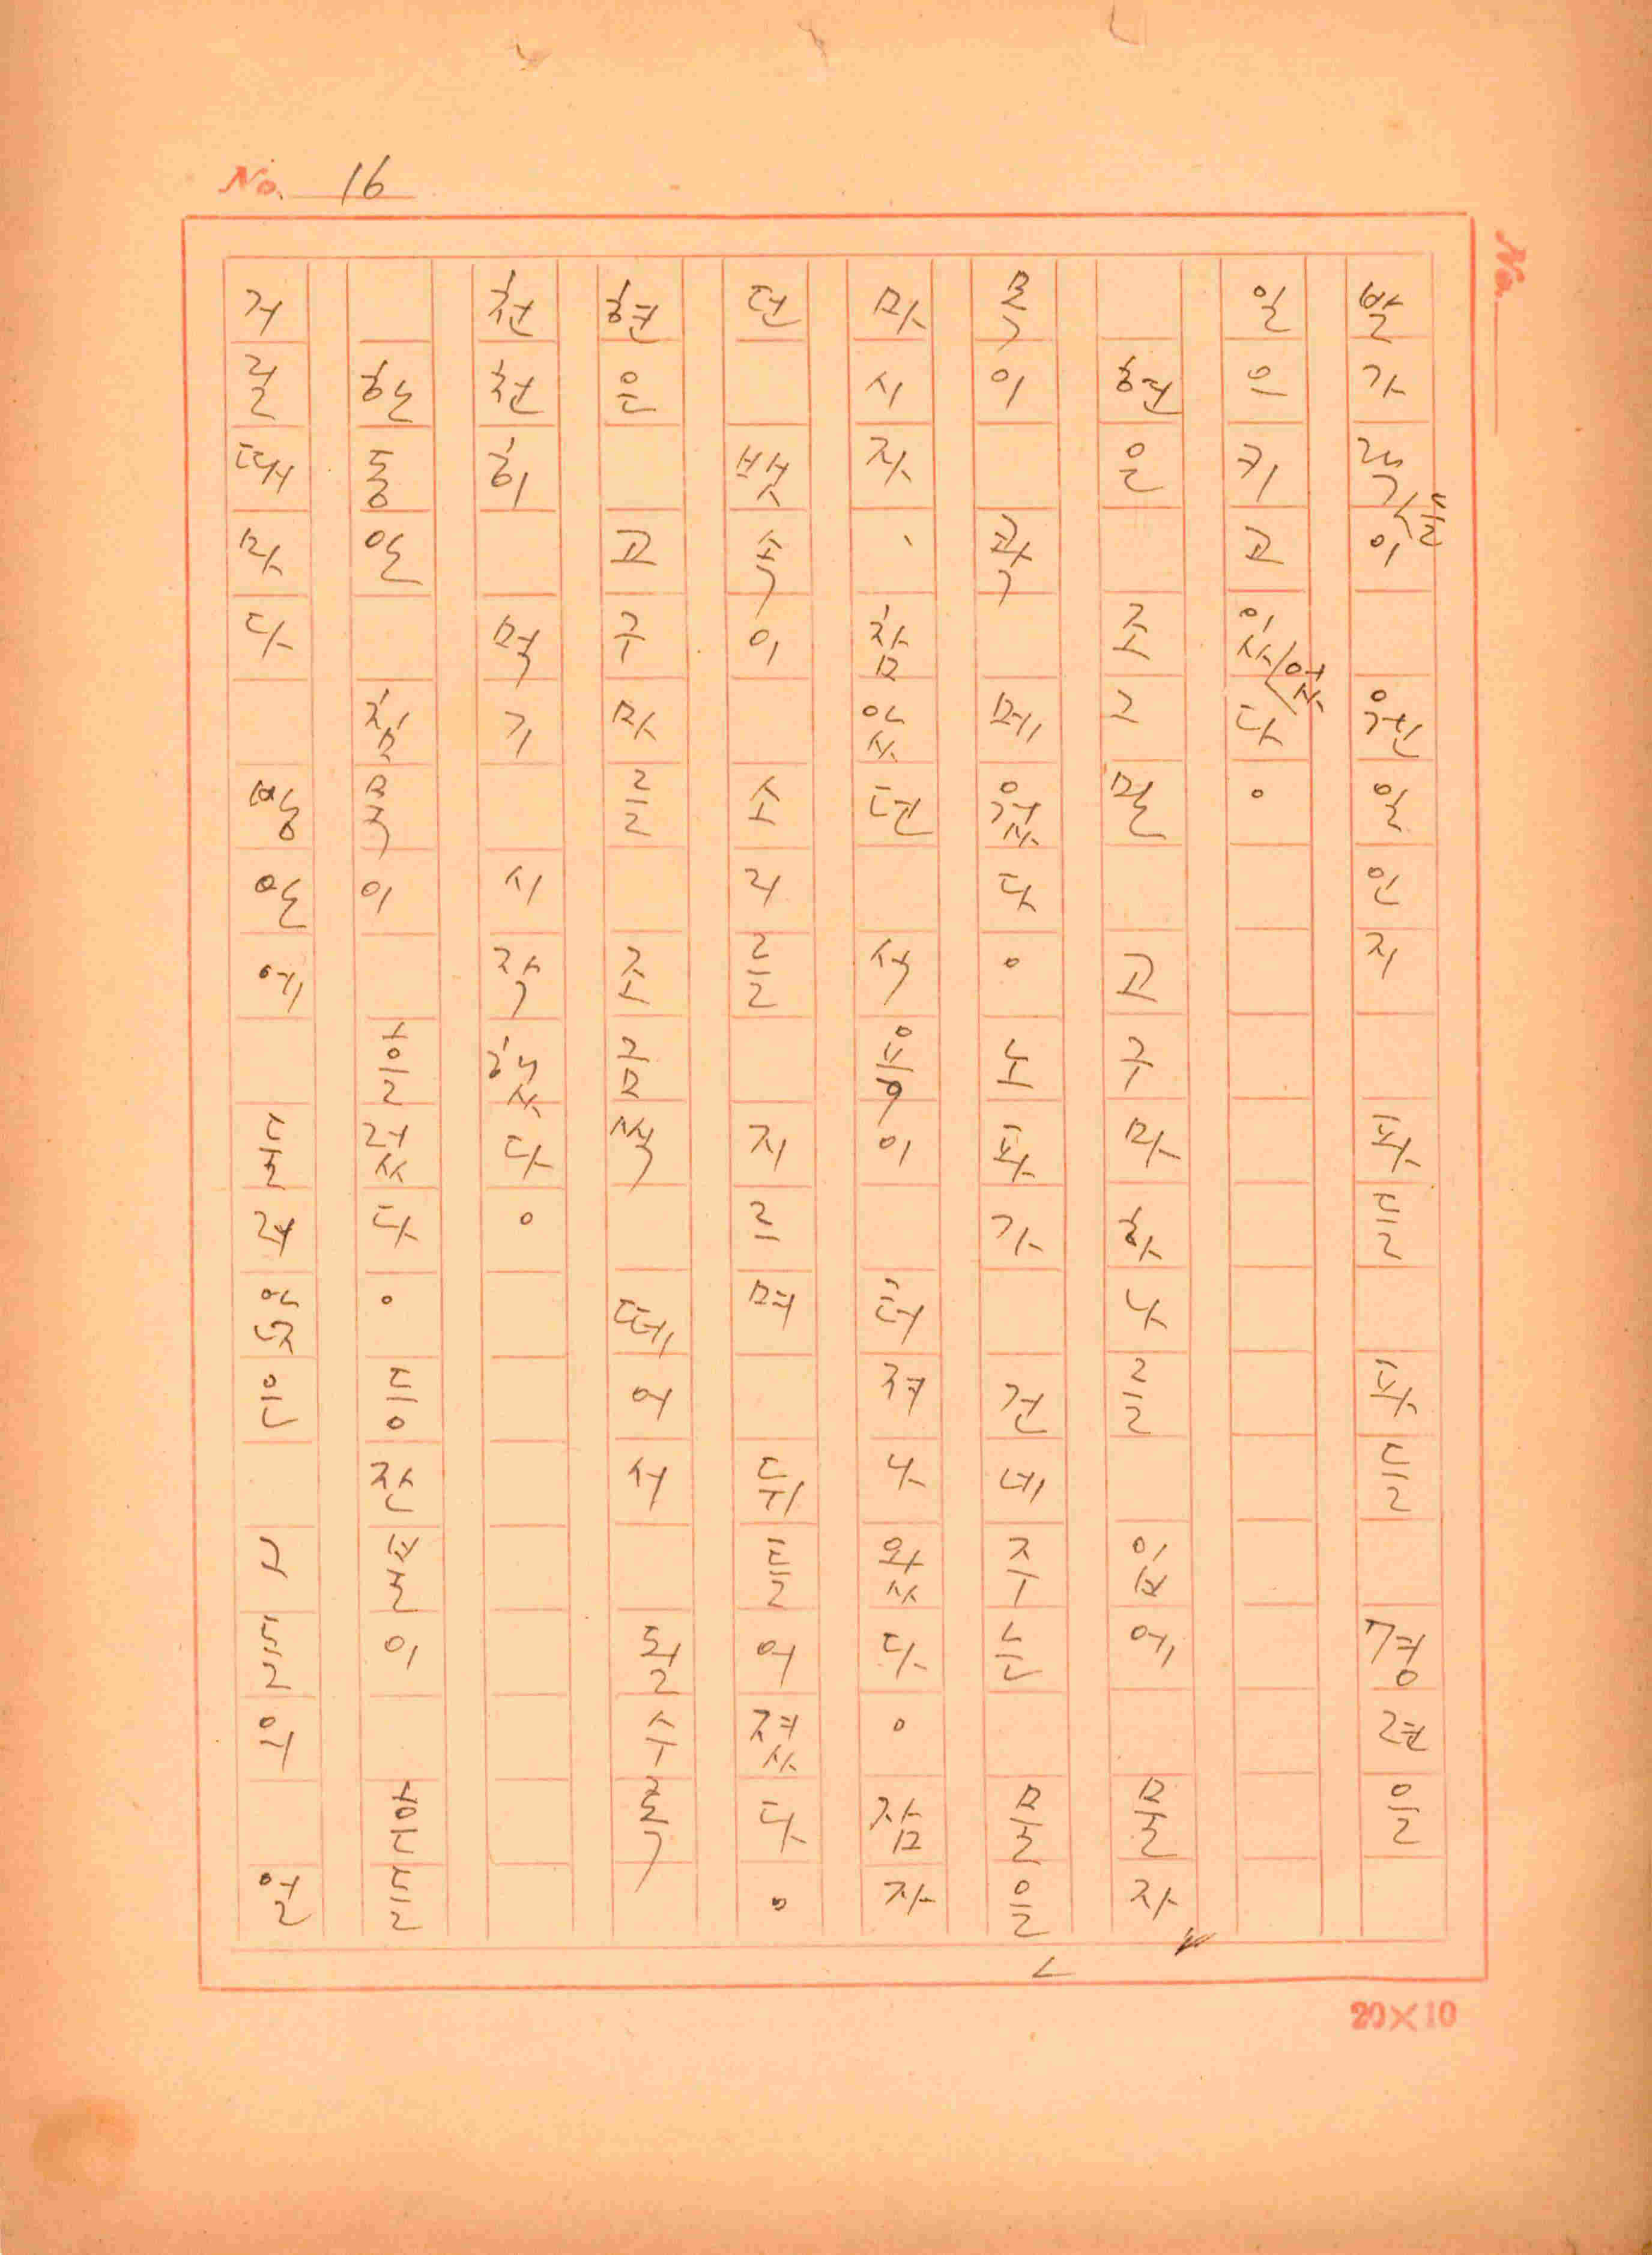 No. 16
No.
발가락들이 웬일인지 파들 파들 경련을
일으키고 있었다。
현은 조그만 고구마 하나를 입에 물자
목이 콱 메었다。노파가 건네주는 물을
마시자、참았던 식욕이 터져나왔다。잠자
던 뱃속이 소리를 지르며 뒤틀어졌다。
현은 고구마를 조금씩 떼어서 될수록
천천히 먹기 시작했다。
한동안 침묵이 흘렀다。등잔불이 흔들
거릴때마다 방안에 둘러앉은 그들의 얼
20×10